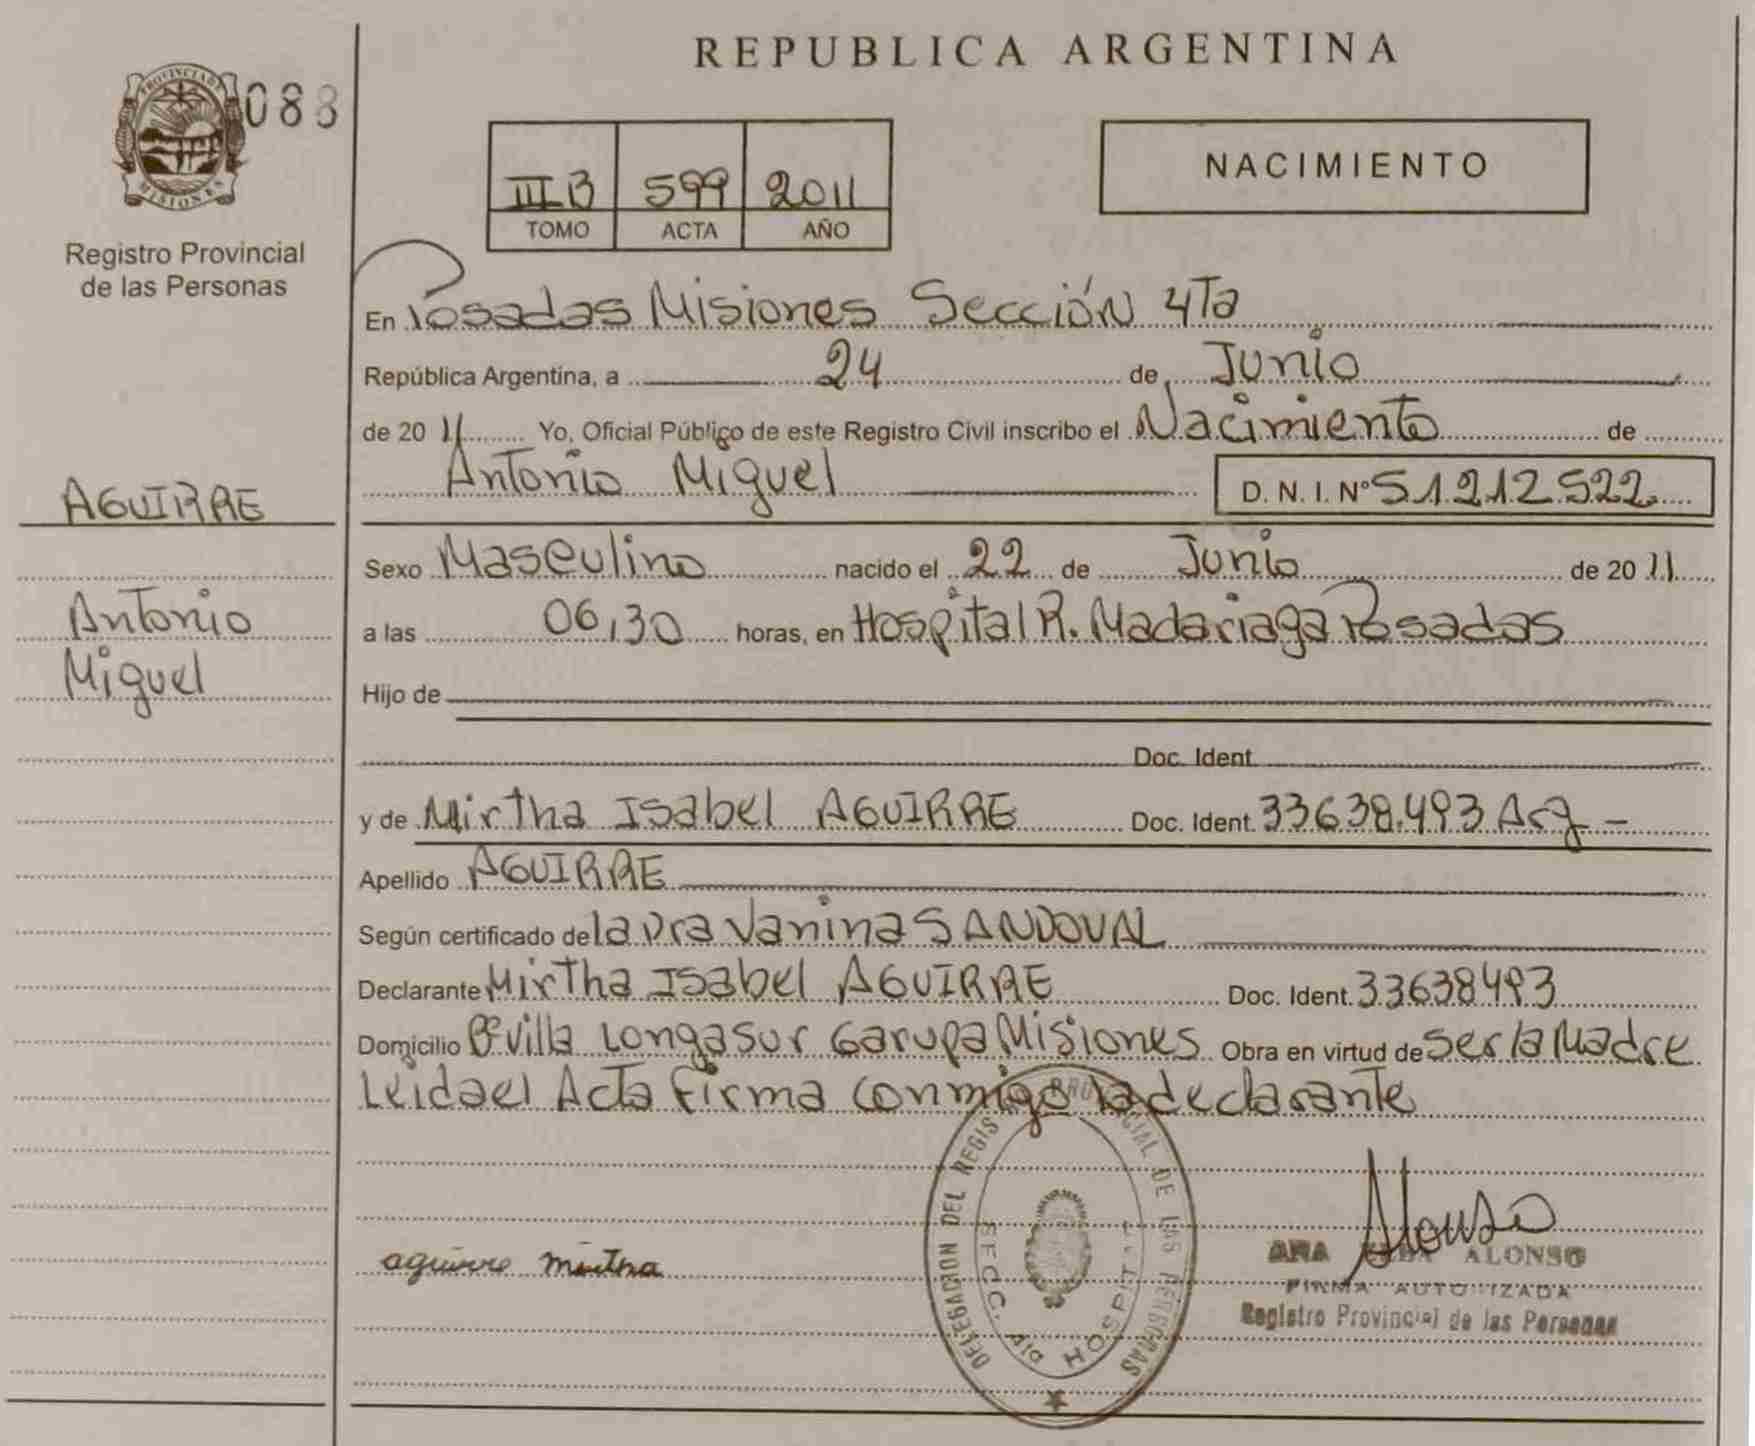 REPUBLICA ARGENTINA
PROVINCIA DE MISIONES
088
Registro Provincial
de las Personas
III B 599 2011
TOMO ACTA AÑO
NACIMIENTO
En Posadas Misiones Sección 4Ta
República Argentina, a 24 de Junio
de 2011 Yo, Oficial Público de este Registro Civil inscribo el Nacimiento de
Antonio Miguel D. N. I. Nº 51.212.522
AGUIRRE
Antonio
Miguel
Sexo Masculino nacido el 22 de Junio de 2011
a las 06,30 horas, en Hospital R. Madariaga Posadas
Hijo de
Doc. Ident
y de Mirtha Isabel AGUIRRE Doc. Ident. 33638.493 Arg -
Apellido AGUIRRE
Según certificado de la Dra Vanina SANDOVAL
Declarante Mirtha Isabel AGUIRRE Doc. Ident. 33638493
Domicilio Bº Villa Longa sur Garupa Misiones Obra en virtud de ser la Madre
Leida el Acta Firma conmigo la declarante
DELEGACION DEL REGISTRO PROVINCIAL DE LAS PERSONAS
SECC. 4ta HOSPITAL
aguirre mirtha
Alonso
ANA ALONSO
FIRMA AUTORIZADA
Registro Provincial de las Personas